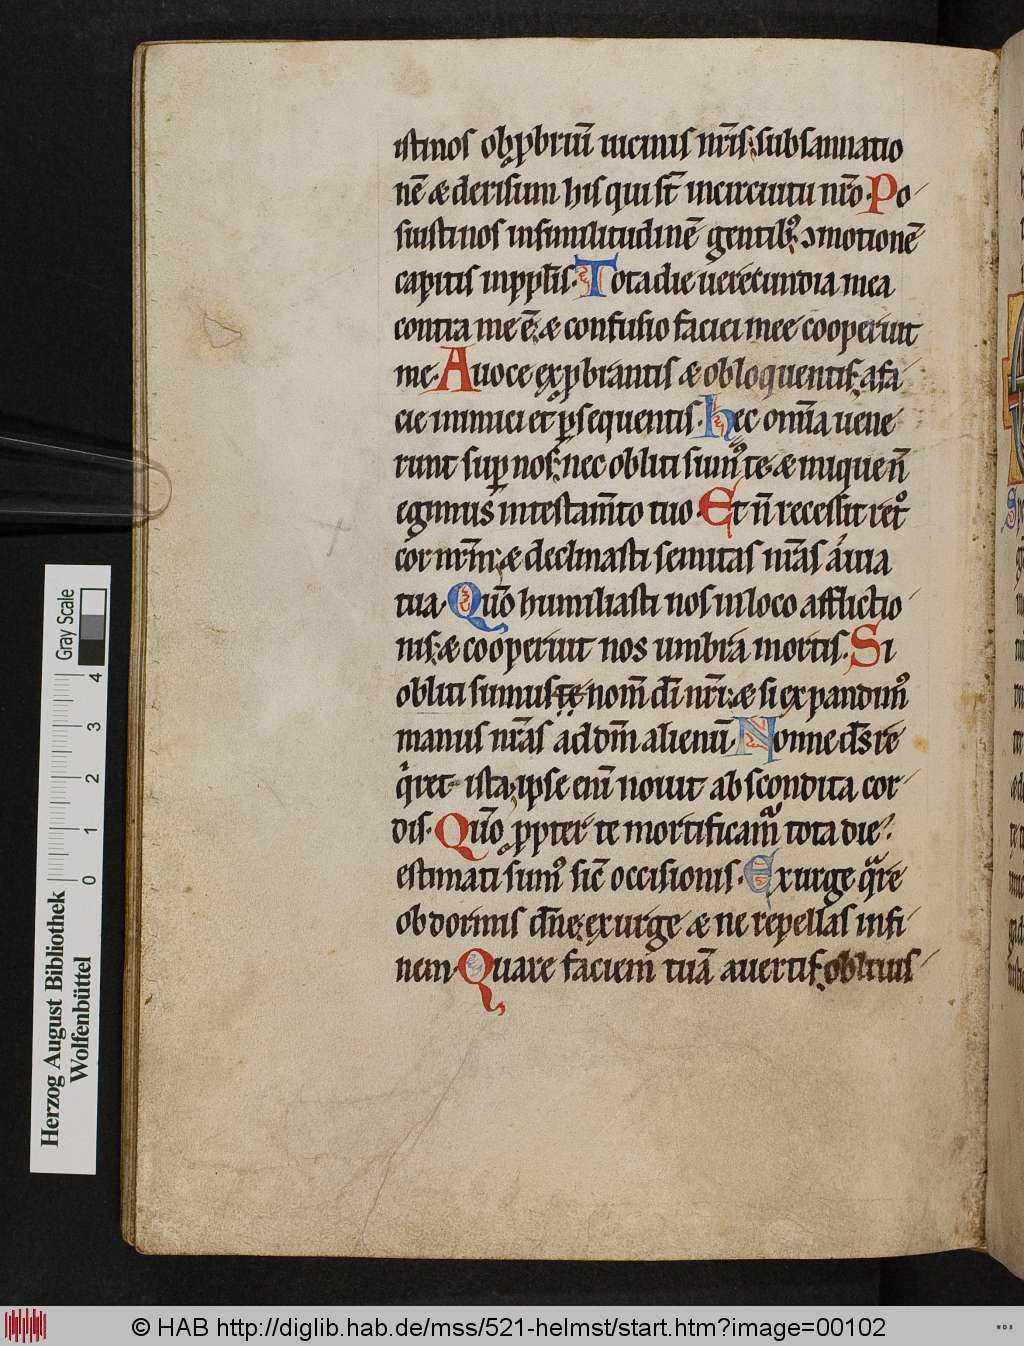 istinos obp̱briū uicinis nr̄is: subsannatio
nē æ derisum his qui st̄ incircuitu nr̄o. Po
suisti nos insimilitudinē gentibꝰ: ɔmotionē
capitis inppl̄is. Tota die uerecundia mea
contra me ē: æ confusio faciei mee cooperuit
me. A uoce exp̱brantis æ obloquentis: a fa
cie inimici et ꝑsequentis. Hec om̄ia uene
runt suꝑ nos: nec obliti sumꝰ te. æ inique n̄
egimus intestam̄to tuo. Et n̄ recessit retͦ
cor nr̄m: æ declinasti semitas nr̄as a uia
tua. Qm̄o humiliasti nos inloco afflictio
nis: æ cooperuit nos umbra mortis. Si
obliti sumus te nom̄ di̅ nr̄i: æ si expandimꝰ
manus nr̄as ad dm̄ alienū. Nonne ds̄ re
qͥret ista: ipse eni̅ nouit abscondita cor
dis. Qm̄o ꝓpter te mortificamᷣ tota die:
estimati sumꝰ sic̄ occisionis. Exurge qͣre
obdormis dn̄e: exurge æ ne repellas infi
nem. Quare faciem tuā auertis: obliuis
Herzog August Bibliothek
Wolfenbüttel
0 1 2 3 4
Gray Scale
© HAB http://diglib.hab.de/mss/521-helmst/start.htm?image=00102